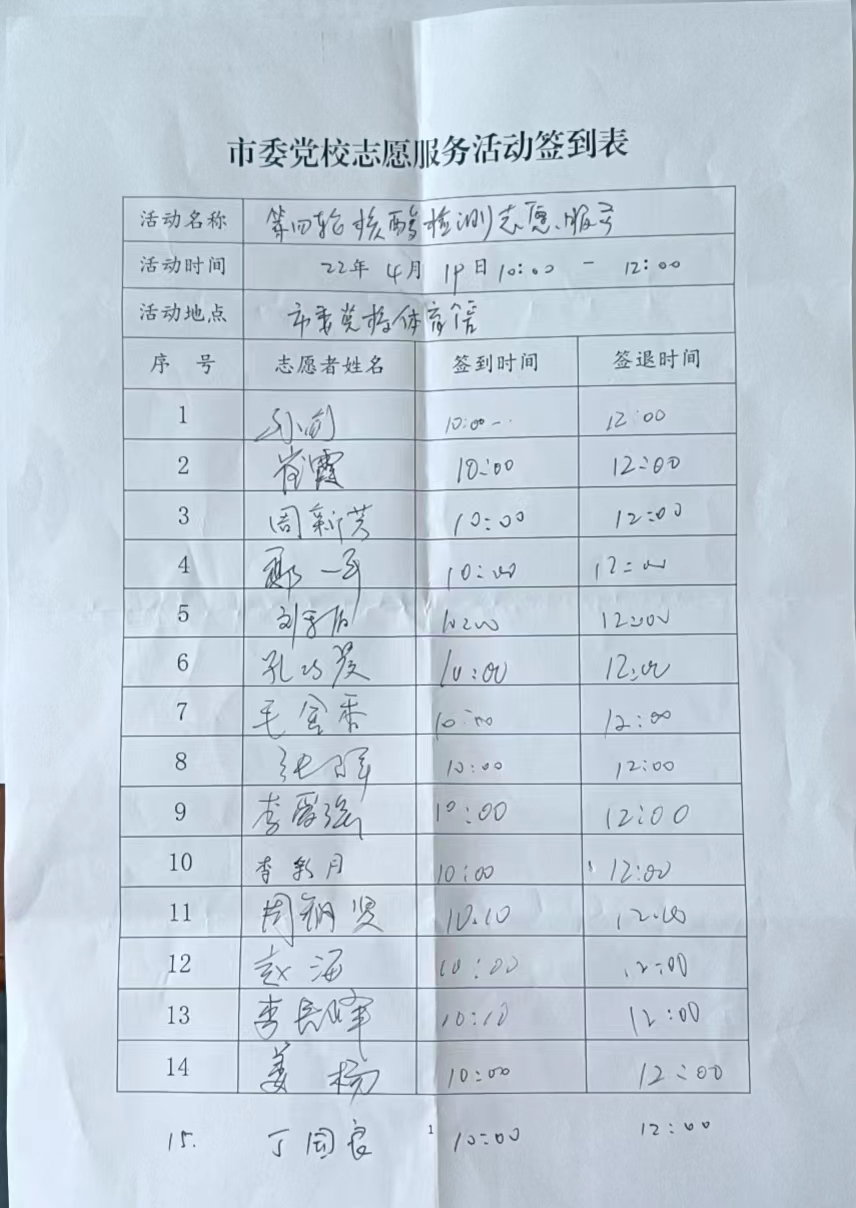 市委党校志愿服务活动签到表
活动名称 第四轮核酸检测志愿服务
活动时间 22年4月19日10:00 - 12:00
活动地点 市委党校体育馆
序 号 志愿者姓名 签到时间 签退时间
1 10:00 12:00
2 崔霞 10:00 12:00
3 周新芳 10:00 12:00
4 10:00 12:00
5 10:00 12:00
6 孔 10:00 12:00
7 毛金香 10:00 12:00
8 10:00 12:00
9 李爱强 10:00 12:00
10 李彩月 10:00 12:00
11 10.10 12.00
12 赵海 10:00 12:00
13 李长峰 10:10 12:00
14 姜杨 10:00 12:00
15. 丁国良 10:00 12:00
1